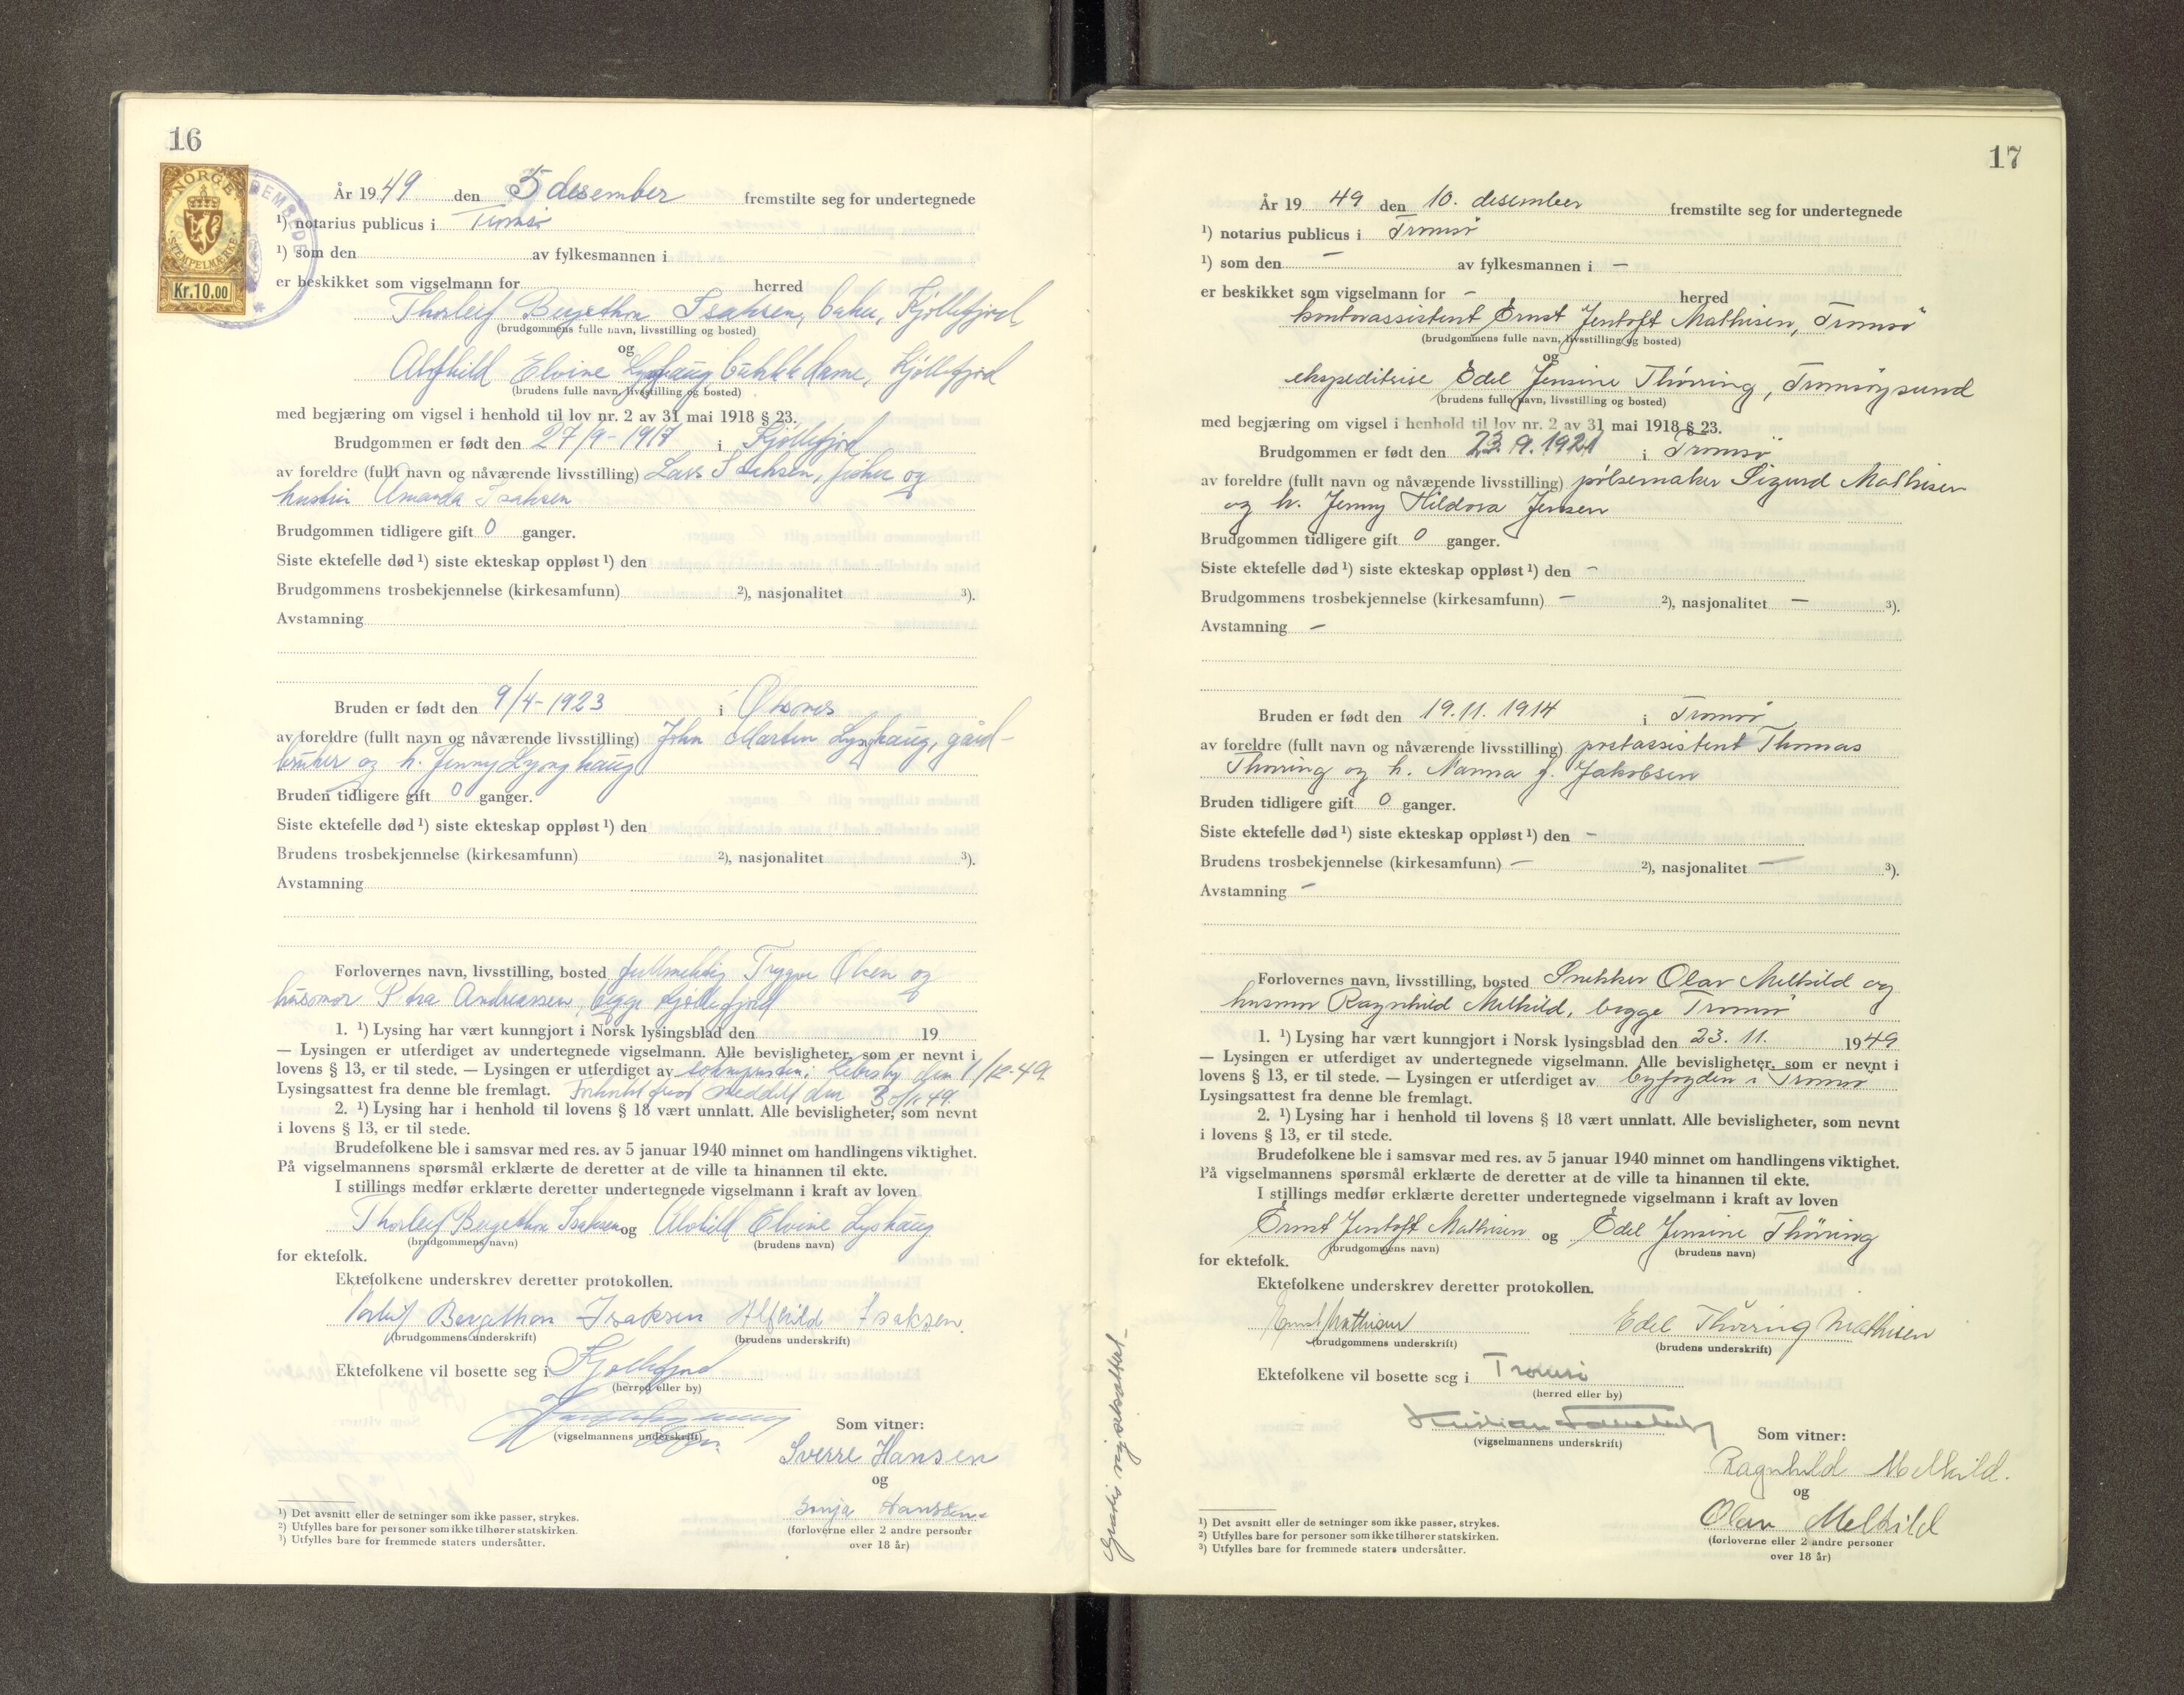 16
NORGE
STEMPELMERKE
Kr.10.00
År 1949 den 5 desember fremstilte seg for undertegnede
¹) notarius publicus i Tromsø
¹) som den av fylkesmannen i
er beskikket som vigselmann for herred
Thorleif Bergethon Isaksen, baker, Kjøllefjord
(brudgommens fulle navn, livsstilling og bosted)
og
Alfhild Elvine Lyshaug butikkdame, Kjøllefjord
(brudens fulle navn, livsstilling og bosted)
med begjæring om vigsel i henhold til lov nr. 2 av 31 mai 1918 § 23.
Brudgommen er født den 27/9-1917 i Kjøllefjord
av foreldre (fullt navn og nåværende livsstilling) Lars Isaksen, fisker og
hustru Amanda Isaksen
Brudgommen tidligere gift 0 ganger.
Siste ektefelle død ¹) siste ekteskap oppløst ¹) den
Brudgommens trosbekjennelse (kirkesamfunn) ²), nasjonalitet ³).
Avstamning
Bruden er født den 9/4-1923 i Øksnes
av foreldre (fullt navn og nåværende livsstilling) John Martin Lynghaug, gård-
bruker og h. Jenny Lynghaug
Bruden tidligere gift 0 ganger.
Siste ektefelle død ¹) siste ekteskap oppløst ¹) den
Brudens trosbekjennelse (kirkesamfunn) ²), nasjonalitet ³).
Avstamning
Forlovernes navn, livsstilling, bosted fullmektig Trygve Olsen og
husmor Petra Andreassen, begge Kjøllefjord
1. ¹) Lysing har vært kunngjort i Norsk lysingsblad den 19
— Lysingen er utferdiget av undertegnede vigselmann. Alle bevisligheter, som er nevnt i
lovens § 13, er til stede. — Lysingen er utferdiget av sokneprsten i Lebesby den 1/12-49.
Lysingsattest fra denne ble fremlagt. meddelt den 30/11.49.
2. ¹) Lysing har i henhold til lovens § 18 vært unnlatt. Alle bevisligheter, som nevnt
i lovens § 13, er til stede.
Brudefolkene ble i samsvar med res. av 5 januar 1940 minnet om handlingens viktighet.
På vigselmannens spørsmål erklærte de deretter at de ville ta hinannen til ekte.
I stillings medfør erklærte deretter undertegnede vigselmann i kraft av loven
Thorleif Bergethon Isaksen og Alvhild Elvine Lyshaug
(brudgommens navn) (brudens navn)
for ektefolk.
Ektefolkene underskrev deretter protokollen.
Torleif Bergethon Isaksen Alfhild Isaksen.
(brudgommens underskrift) (brudens underskrift)
Ektefolkene vil bosette seg i Kjøllefjord
(herred eller by)
(vigselmannens underskrift)
Som vitner:
Sverre Hansen
og
Sonja Hanssen.
(forloverne eller 2 andre personer
over 18 år)
¹) Det avsnitt eller de setninger som ikke passer, strykes.
²) Utfylles bare for personer som ikke tilhører statskirken.
³) Utfylles bare for fremmede staters undersåtter.
17
År 1949 den 10. desember fremstilte seg for undertegnede
¹) notarius publicus i Tromsø
¹) som den – av fylkesmannen i –
er beskikket som vigselmann for – herred
kontorassistent Ernst Jentoft Mathisen, Tromsø
(brudgommens fulle navn, livsstilling og bosted)
og
ekspeditrise Edel Jensine Thørring, Tromsøysund
(brudens fulle navn, livsstilling og bosted)
med begjæring om vigsel i henhold til lov nr. 2 av 31 mai 1918 § 23.
Brudgommen er født den 23.9.1921 i Tromsø
av foreldre (fullt navn og nåværende livsstilling) pølsemaker Sigurd Mathisen
og h. Jenny Hildora Jensen
Brudgommen tidligere gift 0 ganger.
Siste ektefelle død ¹) siste ekteskap oppløst ¹) den –
Brudgommens trosbekjennelse (kirkesamfunn) – ²), nasjonalitet – ³).
Avstamning –
Bruden er født den 19.11.1914 i Tromsø
av foreldre (fullt navn og nåværende livsstilling) postassistent Thomas
Thørring og h. Nanna f. Jakobsen
Bruden tidligere gift 0 ganger.
Siste ektefelle død ¹) siste ekteskap oppløst ¹) den –
Brudens trosbekjennelse (kirkesamfunn) – ²), nasjonalitet – ³).
Avstamning –
Forlovernes navn, livsstilling, bosted Snekker Olav Melkild og
husmor Ragnhild Melkild, begge Tromsø
1. ¹) Lysing har vært kunngjort i Norsk lysingsblad den 23. 11. 1949
— Lysingen er utferdiget av undertegnede vigselmann. Alle bevisligheter, som er nevnt i
lovens § 13, er til stede. — Lysingen er utferdiget av byfogden i Tromsø
Lysingsattest fra denne ble fremlagt.
2. ¹) Lysing har i henhold til lovens § 18 vært unnlatt. Alle bevisligheter, som nevnt
i lovens § 13, er til stede.
Brudefolkene ble i samsvar med res. av 5 januar 1940 minnet om handlingens viktighet.
På vigselmannens spørsmål erklærte de deretter at de ville ta hinannen til ekte.
I stillings medfør erklærte deretter undertegnede vigselmann i kraft av loven
Ernst Jentoft Mathisen og Edel Jensine Thørring
(brudgommens navn) (brudens navn)
for ektefolk.
Ektefolkene underskrev deretter protokollen.
Ernst Mathisen Edel Thørring Mathisen
(brudgommens underskrift) (brudens underskrift)
Ektefolkene vil bosette seg i Tromsø
(herred eller by)
(vigselmannens underskrift)
Som vitner:
Ragnhild Melkild.
og
Olav Melkild
(forloverne eller 2 andre personer
over 18 år)
Gratis vigselsattest-
¹) Det avsnitt eller de setninger som ikke passer, strykes.
²) Utfylles bare for personer som ikke tilhører statskirken.
³) Utfylles bare for fremmede staters undersåtter.